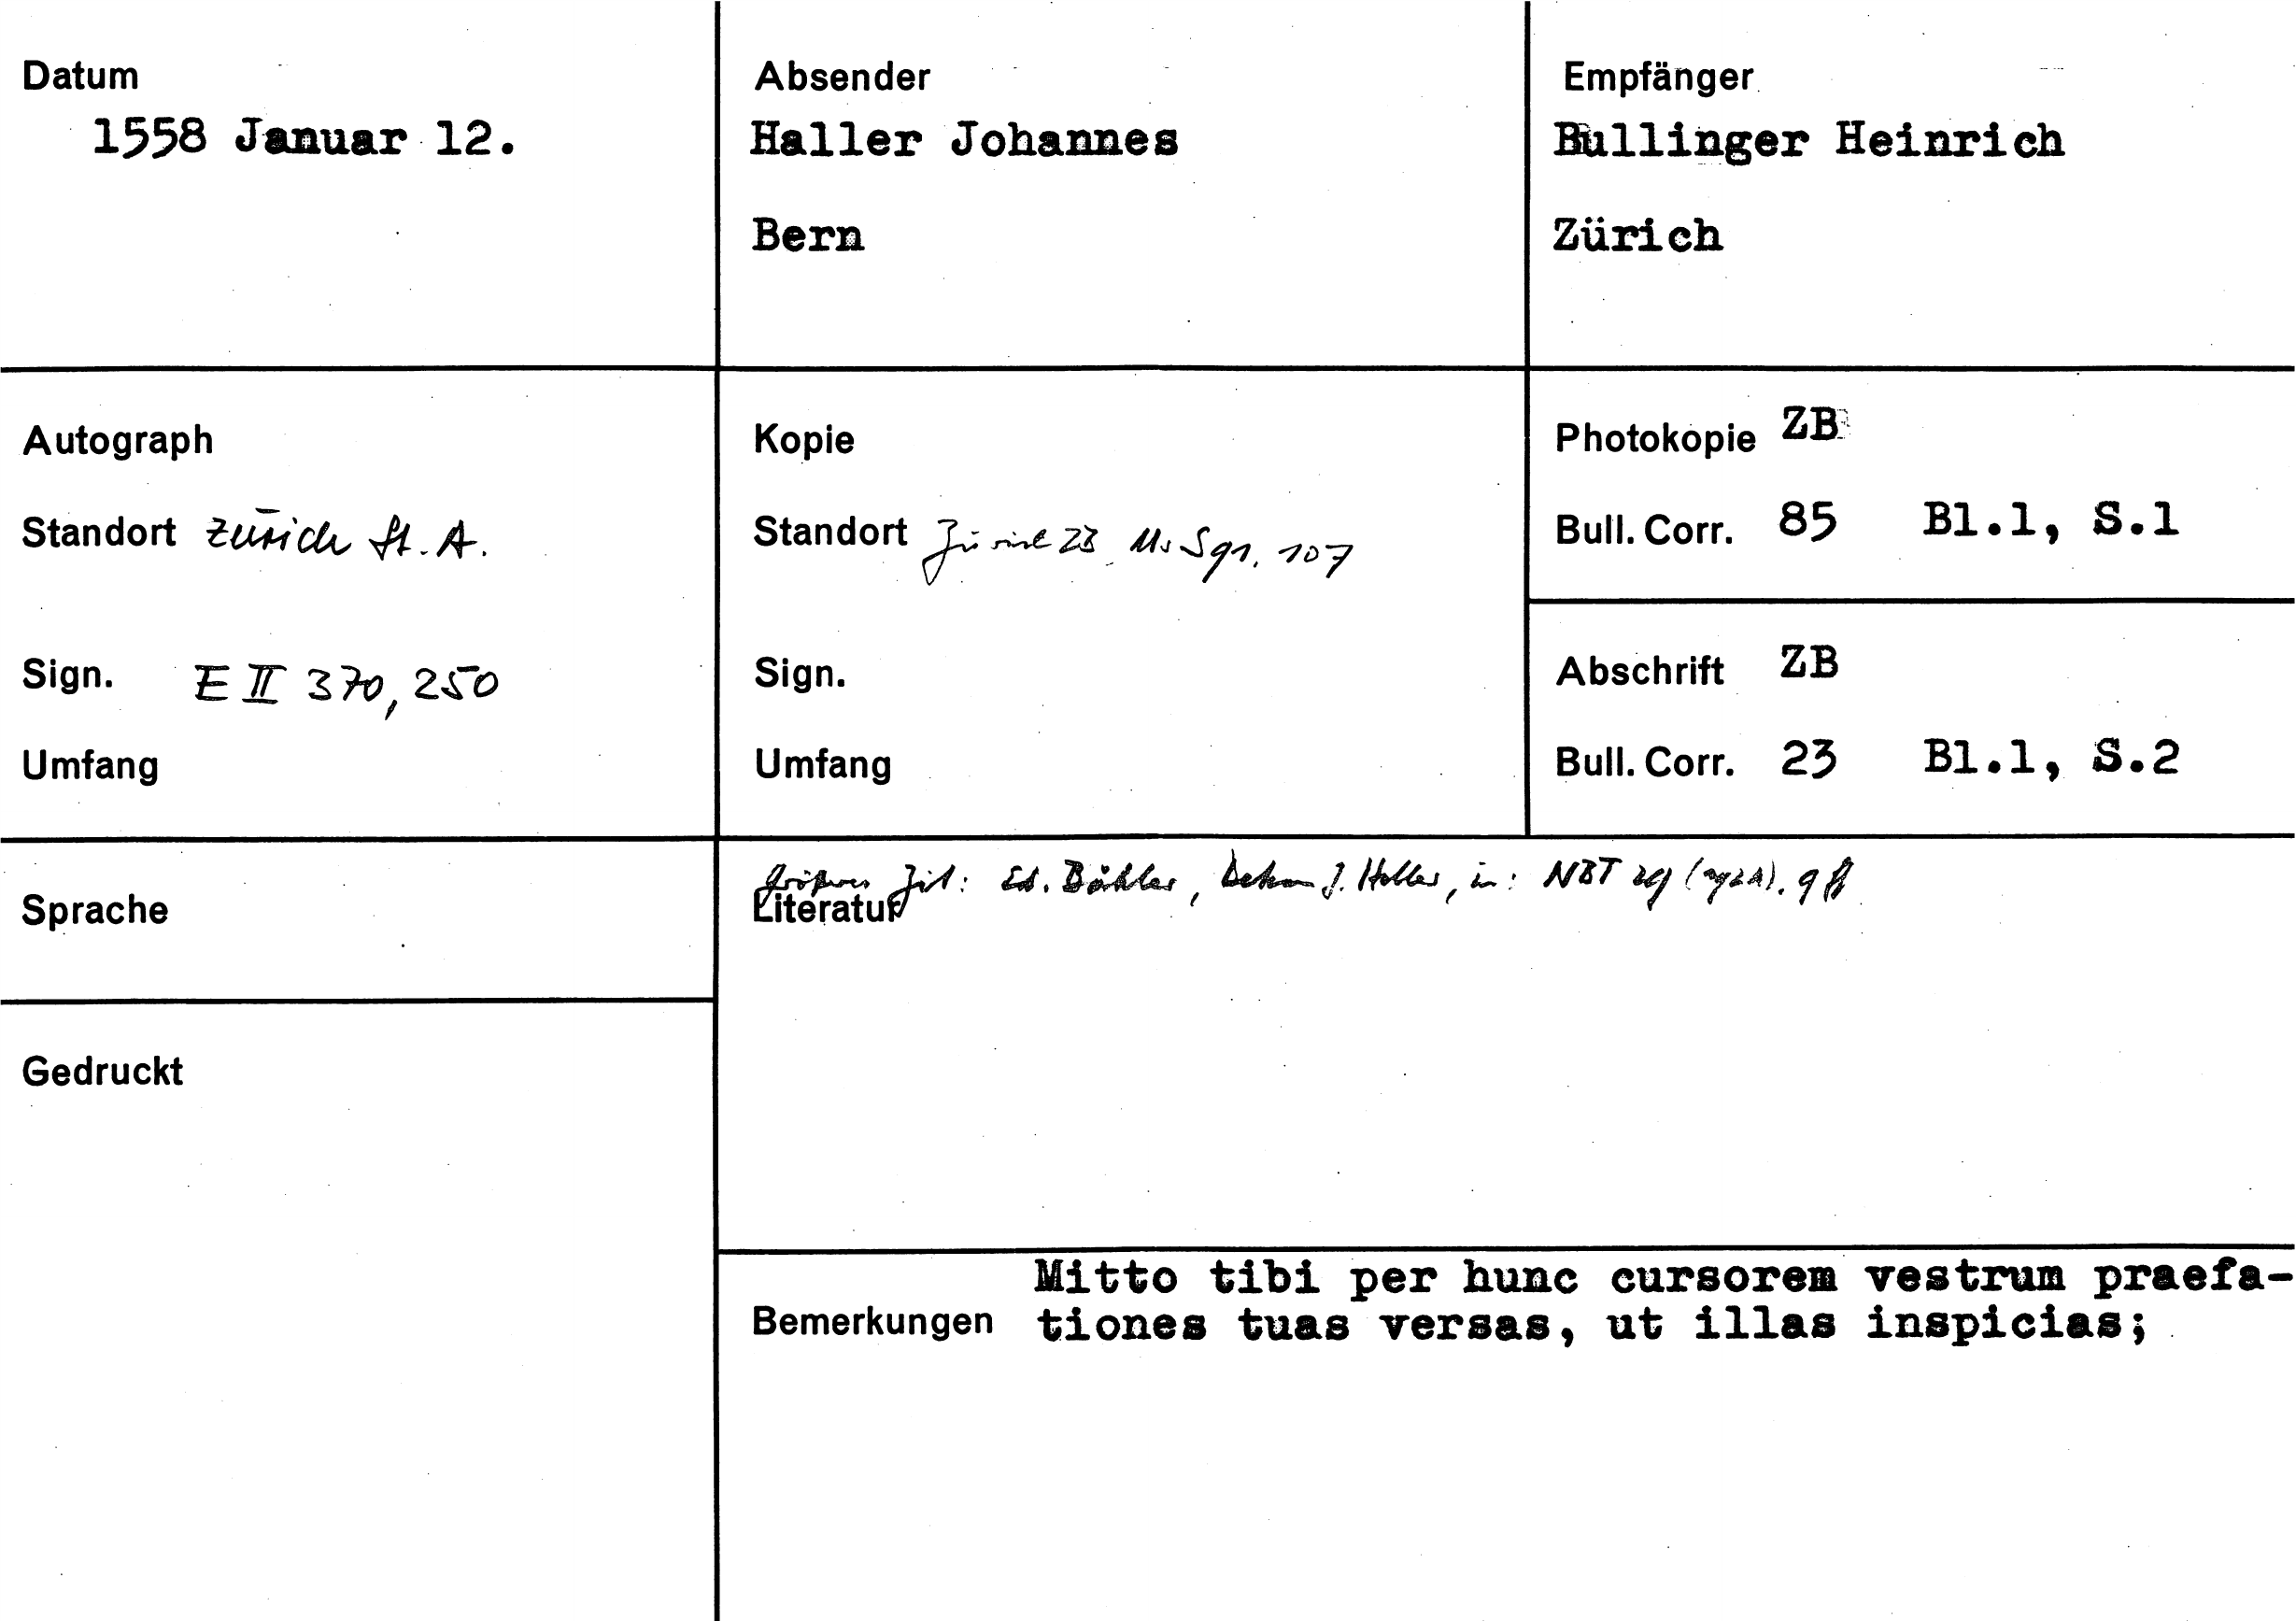 Datum
1558 Januar 12.
Absender
Haller Johannes
Bern
Empfänger
Bullinger Heinrich
Zürich
Autograph
Standort Zürich St. A.
Sign. E II 370, 250
Umfang
Kopie
Standort Zürich ZB Ms S 91, 107
Sign.
Umfang
Photokopie ZB
Bull. Corr. 85 Bl.1, S.1
Abschrift ZB
Bull. Corr. 23 Bl.1, S.2
Sprache
Gedruckt
Zit: Ed. Bähler, Dekan J. Haller, in: NBT
Literatur
Bemerkungen Mitto tibi per hunc cursorem vestrum praefa-
tiones tuas versas, ut illas inspicias;